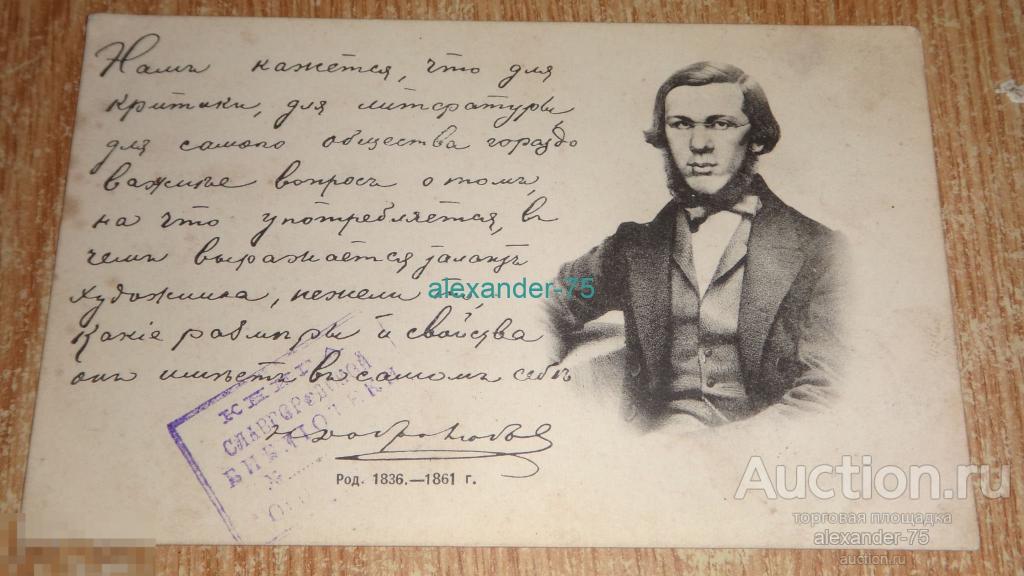 Намъ кажется, что для
критики, для литературы,
для самого общества гораздо
важнѣе вопросъ о томъ,
на что употребляется, въ
чемъ выражается талантъ
художника, нежели то,
какіе размѣры и свойства
онъ имѣетъ въ самомъ себѣ
Н. Добролюбовъ
Род. 1836.—1861 г.
СЛАВГОРОДСКОЙ
БИБЛІОТЕКИ
№
alexander-75
Auction.ru
торговая площадка
alexander-75
auction.ru